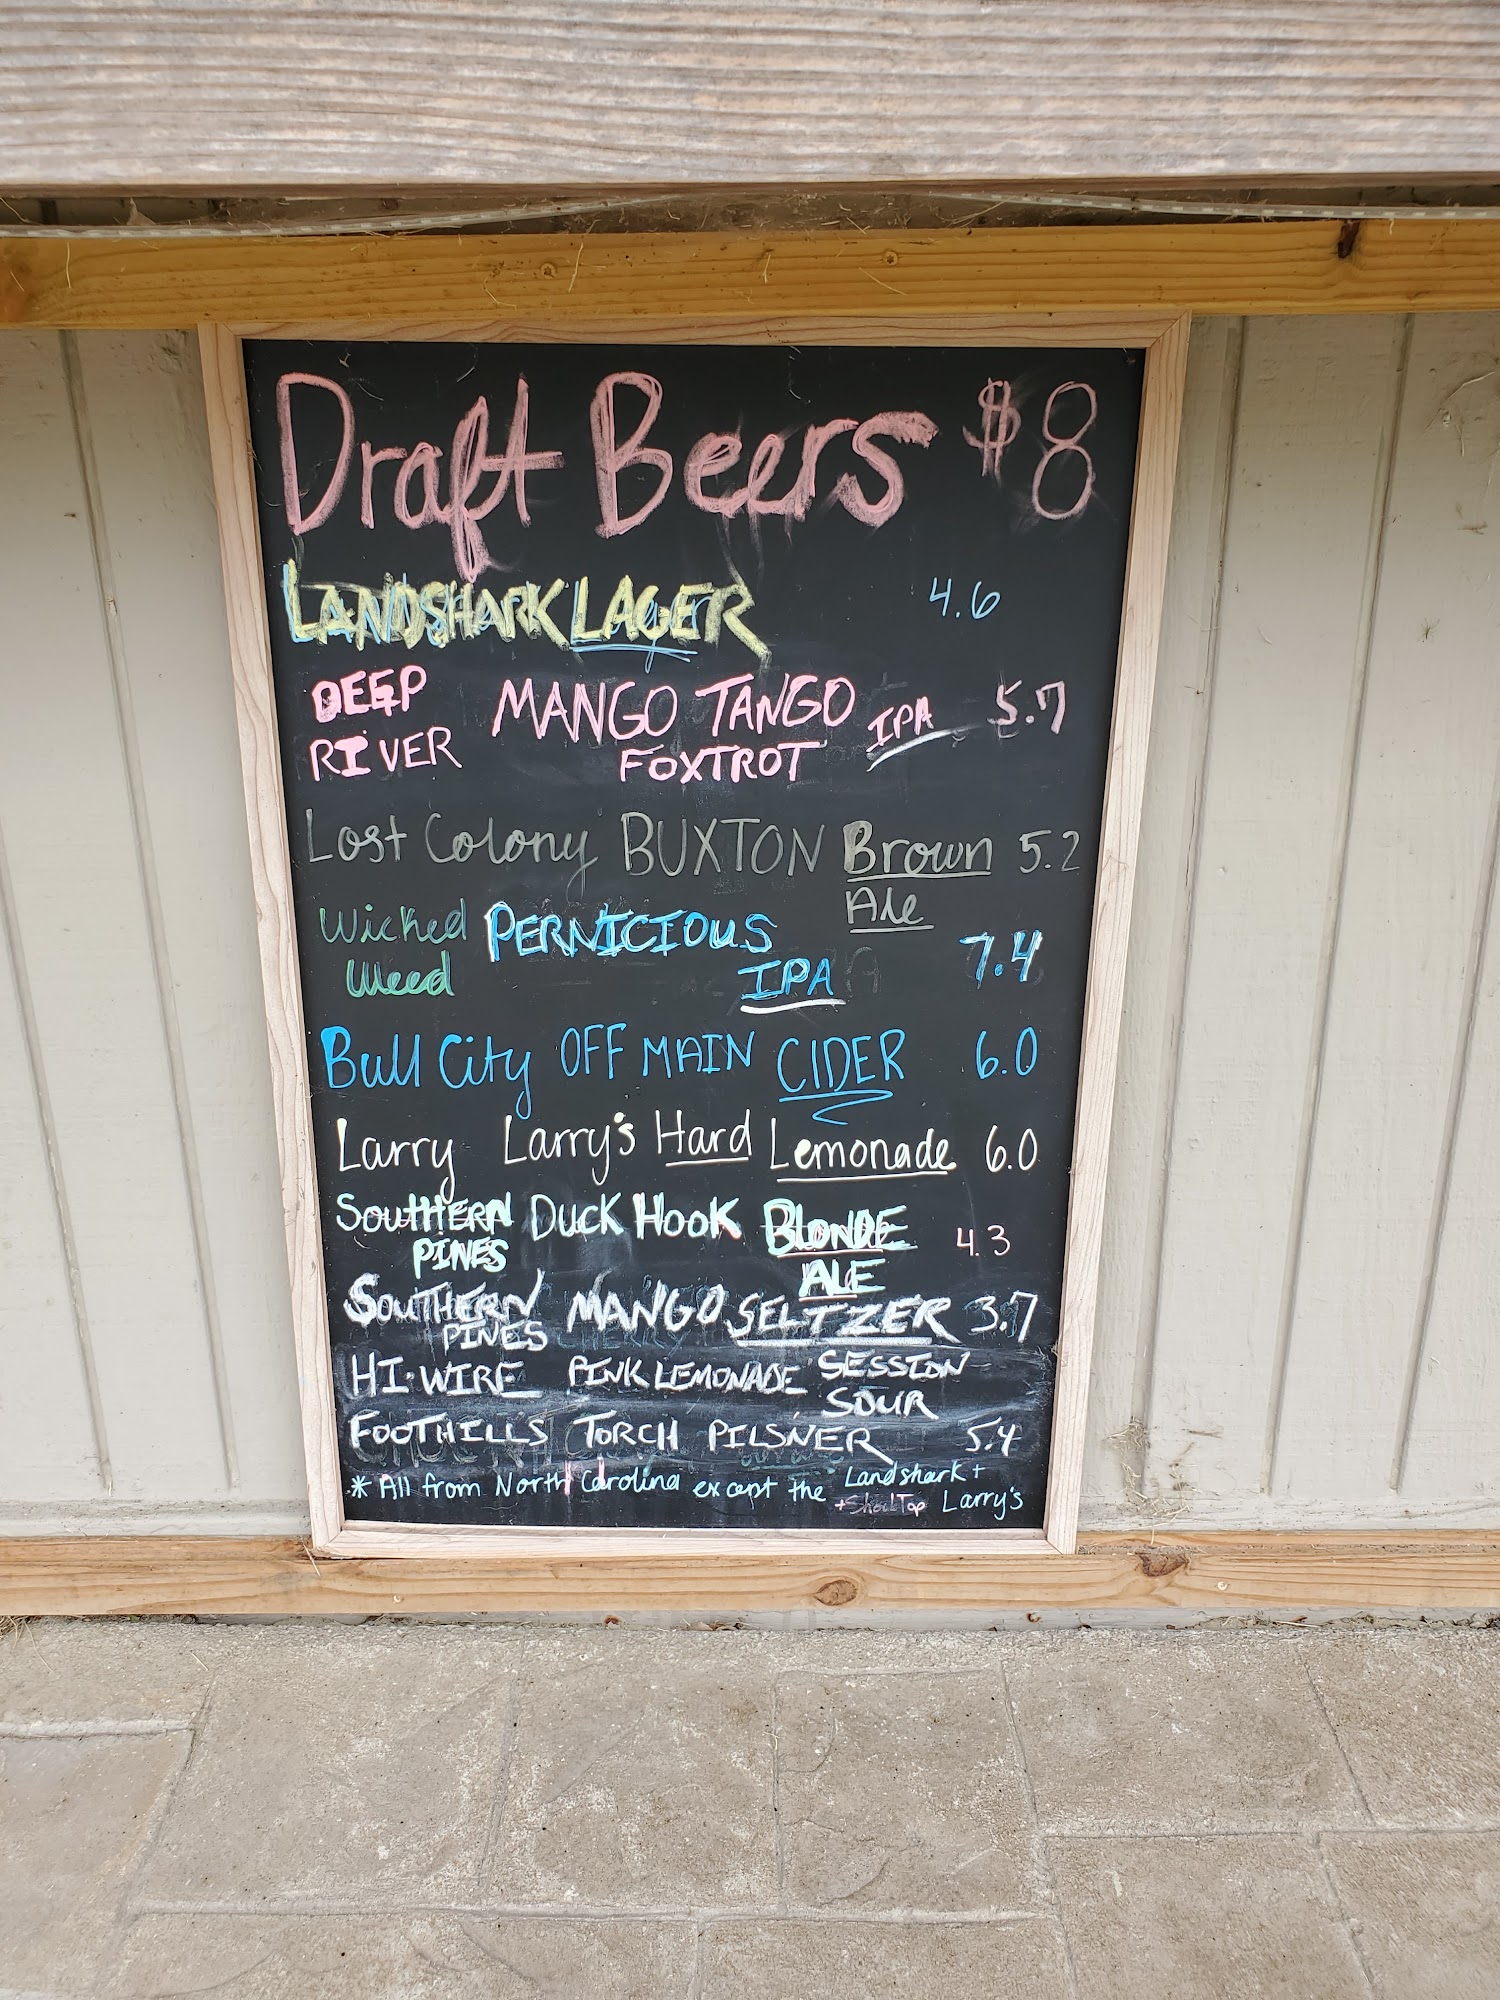 Draft Beers $8
LANDSHARK LAGER 4.6
DEEP MANGO TANGO IPA 5.7
RIVER FOXTROT
Lost Colony BUXTON Brown 5.2
Ale
Wicked PERNICIOUS 7.4
Weed IPA
Bull City OFF MAIN CIDER 6.0
Larry Larry's Hard Lemonade 6.0
SOUTHERN DUCK HOOK BLONDE 4.3
PINES ALE
SOUTHERN MANGO SELTZER 3.7
PINES
HI-WIRE PINK LEMONADE SESSION
SOUR
FOOTHILLS TORCH PILSNER 5.4
* All from North Carolina except the Landshark +
+ShockTop Larry's